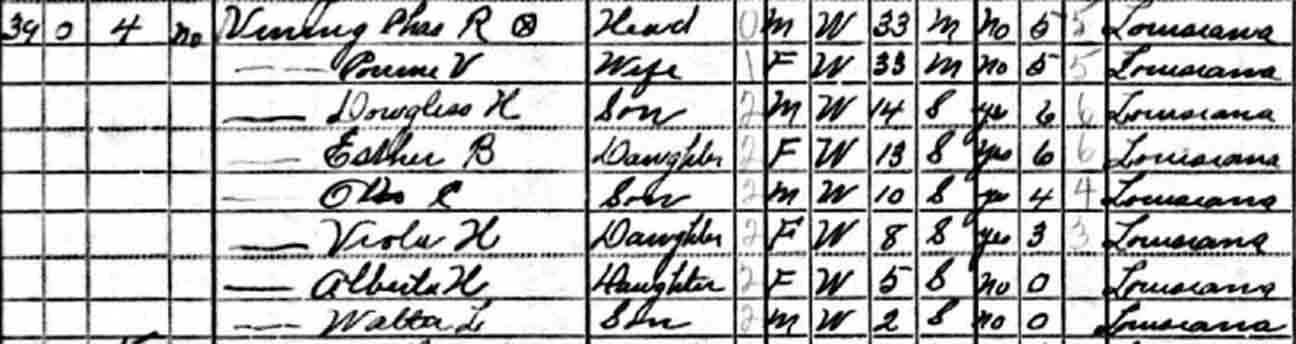 39 0 4 no Vining Chas R ⓧ Head 0 M W 33 M no 5 5 Louisiana
— — V Wife 1 F W 33 M no 5 5 Louisiana
— Dougless H Son 2 M W 14 S yes 6 6 Louisiana
— Esther B Daughter 2 F W 13 S yes 6 6 Louisiana
— C Son 2 M W 10 S yes 4 4 Louisiana
— Viola H Daughter 2 F W 8 S yes 3 3 Louisiana
— Alberta H Daughter 2 F W 5 S no 0 Louisiana
— Walta L Son 2 M W 2 S no 0 Louisiana